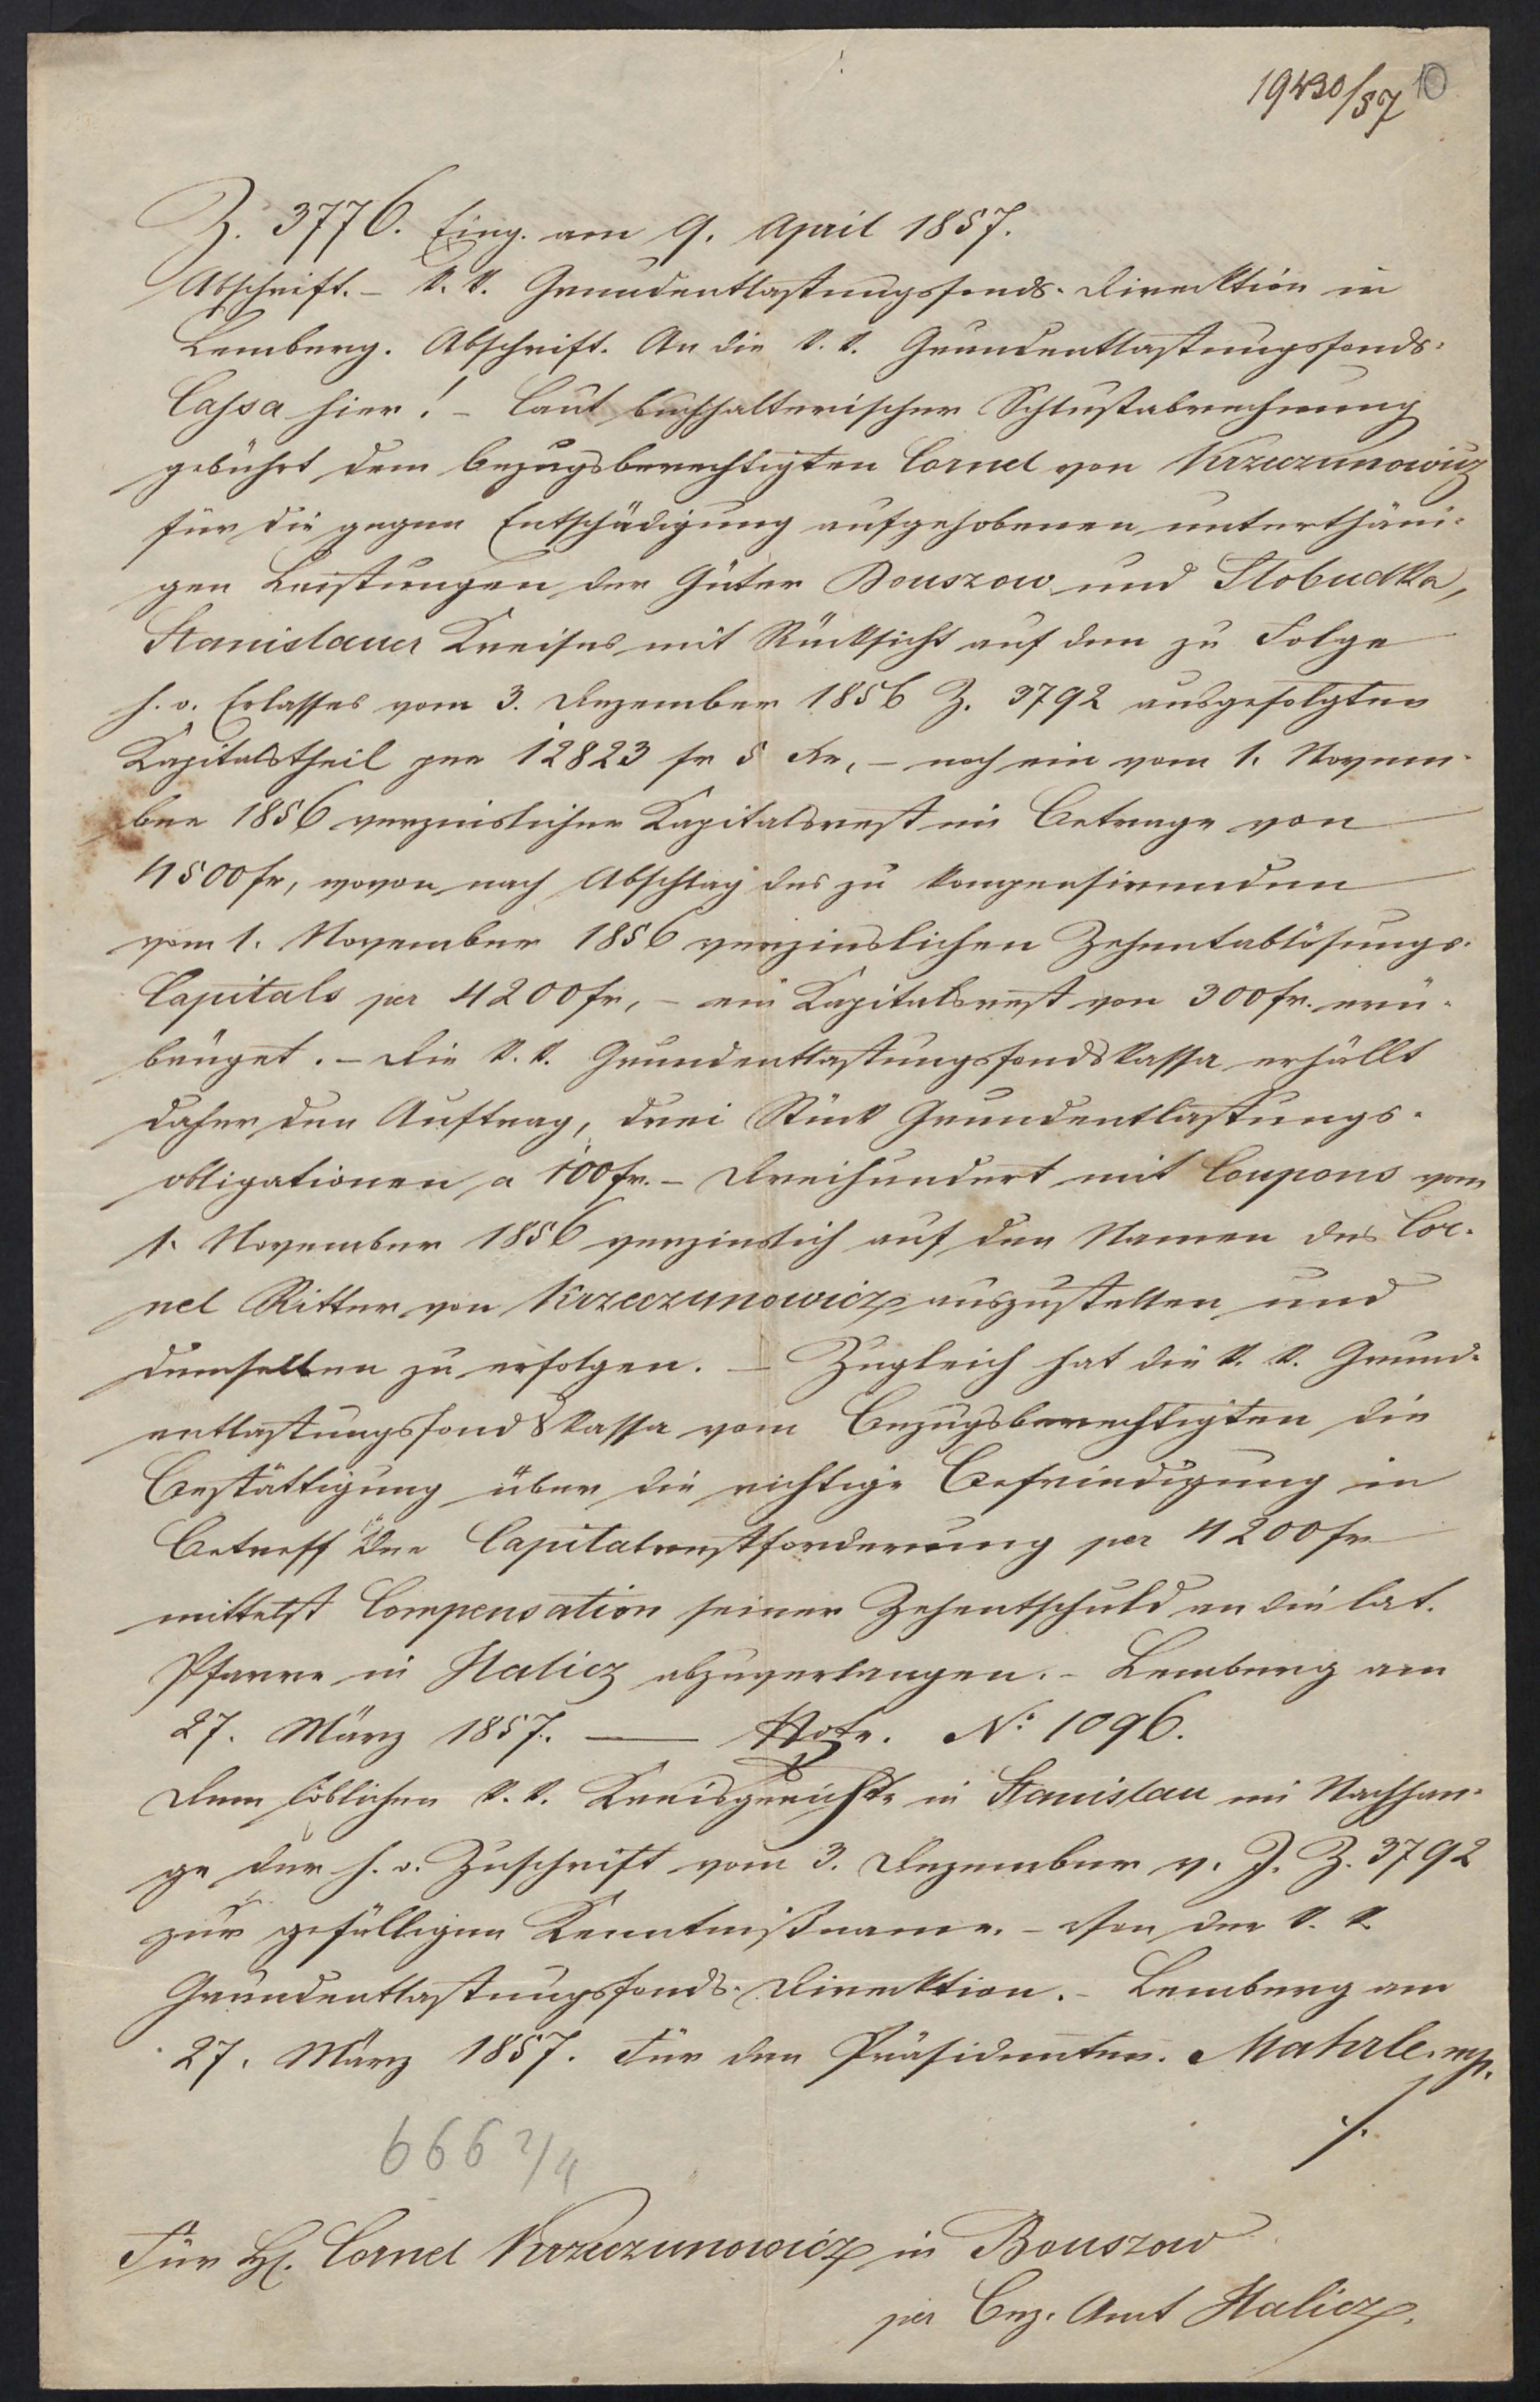 19430/57 10
Z. 3776. Eing. am 9. April 1857.
Abschrift. – k. k. Grundentlastungsfonds-Direktion in
Lemberg. Abschrift. An die k. k. Grundentlastungsfonds-
Cassa hier! – Laut buchhalterischer Schlußabrechnung
gebührt dem bezugsberechtigten Cornel von Krzeczunowicz
für die gegen Entschädigung aufgehobenen unterthäni-
gen Leistungen der Güter Bouszow und Slobudka,
Stanislauer Kreises mit Rücksicht auf den zu Folge
h. o. Erlasses vom 3. Dezember 1856 Z. 3792 ausgefolgten
Kapitalstheil per 12823 fr 5 Kr, – noch ein vom 1. Novem-
ber 1856 verzinslicher Kapitalsrest im Betrage von
4500 fr, wovon nach Abschlag des zu kompensirenden
vom 1. November 1856 verzinslichen Zehentablösungs-
Capitals per 4200 fr, – ein Kapitalsrest von 300 fr. erü-
briget. – Die k. k. Grundentlastungsfondskassa erhällt
daher den Auftrag, drei Stück Grundentlastungs-
obligationen a 100 fr. – Dreihundert mit Coupons vom
1. November 1856 verzinslich auf den Namen des Cor-
nel Ritter von Krzeczunowicz auszustellen und
demselben zu erfolgen. – Zugleich hat die k. k. Grund-
entlastungsfondskassa vom Bezugsberechtigten die
Bestättigung über die richtige Befriedigung in
Betreff der Capitalrestforderung per 4200 fr
mittelst Compensation seiner Zehentschuld an die lat.
Pfarre in Halicz abzuverlangen. – Lemberg am
27. März 1857. — N° 1096.
Dem löblichen k. k. Kreisgerichte in Stanislau im Nachhan-
ge der h. o. Zuschrift vom 3. Dezember v. J. Z. 3792
zur gefälligen Kenntnißname. – Von der k. k.
Grundentlastungsfonds-Direktion. – Lemberg am
27. März 1857. Für den Präsidenten. Mahrle. mp.
./.
666 2/4
Für H. Cornel Krzeczunowicz in Bouszow
per Bez. Amt Halicz.